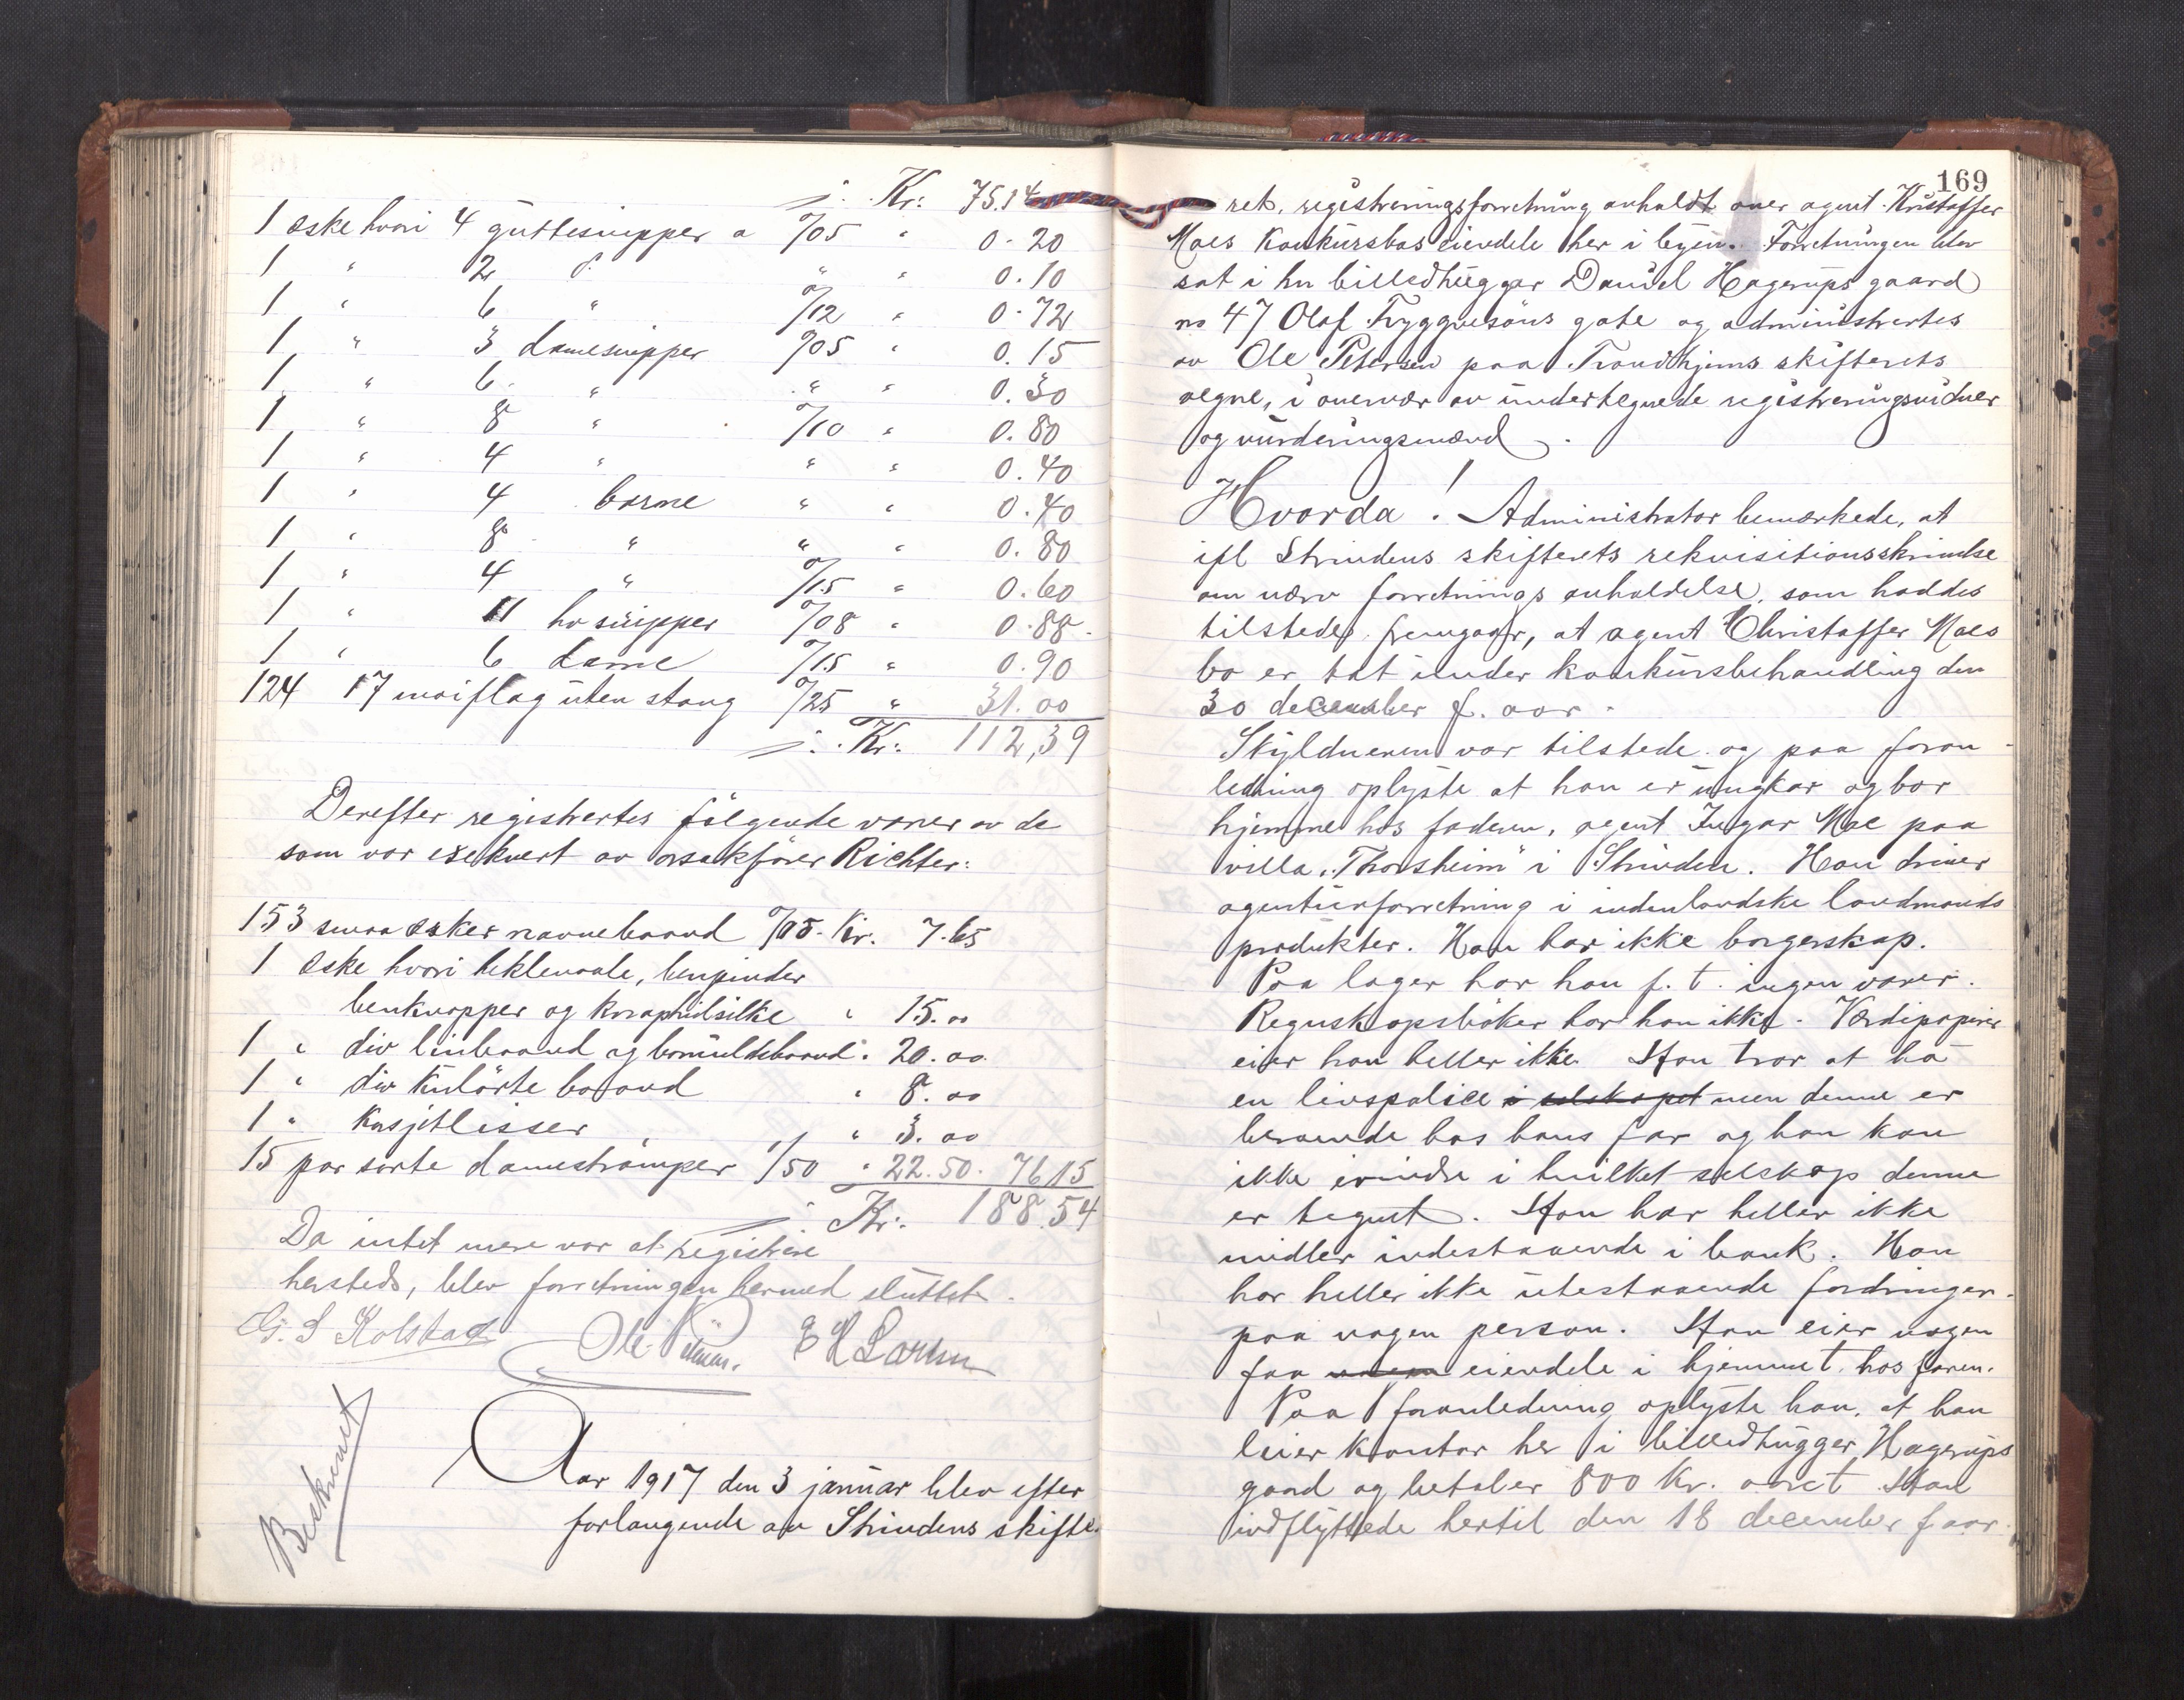 ÷ Kr: 75.14
1 æske hvori 4 guttesnipper a %05 " 0.20
1 " 2 d. " " 0.10
1 " 6 " %12 " 0.72
1 " 3 damesnipper %05 " 0.15
1 " 6 " " " 0.30
1 " 8 " %10 " 0.80
1 " 4 " " " 0.40
1 " 4 barne " " 0.40
1 " 8 " " " 0.80
1 " 4 " %15 " 0.60
1 " 11 hr snipper %08 " 0.88
1 " 6 dame %15 " 0.90
124 17 maiflag uten stang %25 " 31.00
÷ Kr: 112,39
Derefter registrertes følgende varer av de
som var exekvert av orsakfører Richter:
153 smaa æsker navnebaand %05. Kr. 7.65
1 æske hvori heklenaale, benpinder
benknapper og knaphulsilke " 15.00
1 " div linbaand og bomuldsbaand " 20.00
1 " div kulørte baand " 8.00
1 " Korsjetlisser " 3.00
15 par sorte damestrømper 1/50 " 22.50. 76 15
÷ Kr. 188.54
Da intet mere var at registrere
hersteds, blev forretningen hermed sluttet.
G. S Kolstad Ole Petersen. E H Larsen
Beskrevet
Aar 1917 den 3 januar blev efter
forlangende av Strindens skifte-
169
ret, registreringsforretning avholdt over agent Kristoffer
Moes Konkursbos eiendele her i byen. Forretningen blev
sat i hr billedhugger Daniel Hagerups gaard
no 47 Olaf Tryggvesøns gate og administrertes
av Ole Petersen paa Trondhjems skifterets
vegne, i overvær av undertegnede registreringsvidner
og vurderingsmænd.
Hvorda! Administrator bemærkede, at
ifl Strindens skifterets rekvisitionsskrivelse
om nærv forretnings avholdelse, som haddes
tilstede, fremgaar, at agent Christoffer Moes
bo er tat under konkursbehandling den
30 december f. aar.
Skyldneren var tilstede og paa foran-
ledning oplyste at han er ungkar og bor
hjemme hos faderen, agent Ingar Moe paa
villa „Thorsheim" i Strinden. Han driver
agenturforretning i indenlandske landmands
produkter. Han har ikke borgerskap.
Paa lager har han f. t. ingen varer.
Regnskapsbøker har han ikke. Værdipapirer
eier han heller ikke. Han tror at ha
en livspolice i selskapet men denne er
beroende hos hans far og han kan
ikke erindre i hvilket selskap denne
er tegnet. Han har heller ikke
midler indestaaende i bank. Han
har heller ikke utestaaende fordringer
paa nogen person. Han eier nogen
faa nogen eiendele i hjemmet hos faren.
Paa foranledning oplyste han, at han
leier kontor her i billedhugger Hagerups
gaard og betaler 800 Kr. aaret. Han
indflyttede hertil den 18 december f aar.